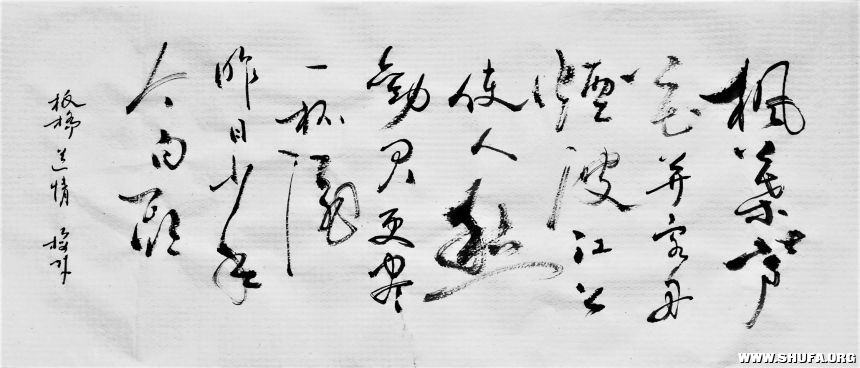 楓葉芦
花并客舟
煙波江上
使人愁
勸君更尽
一杯酒
昨日少年
今白頭
板桥道情
WWW.SHUFA.ORG